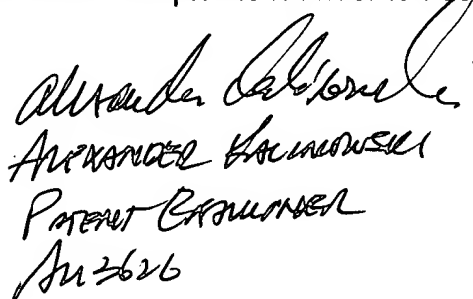 Alexander Kalinowski
ALEXANDER KALINOWSKI
PATENT EXAMINER
AU 3626